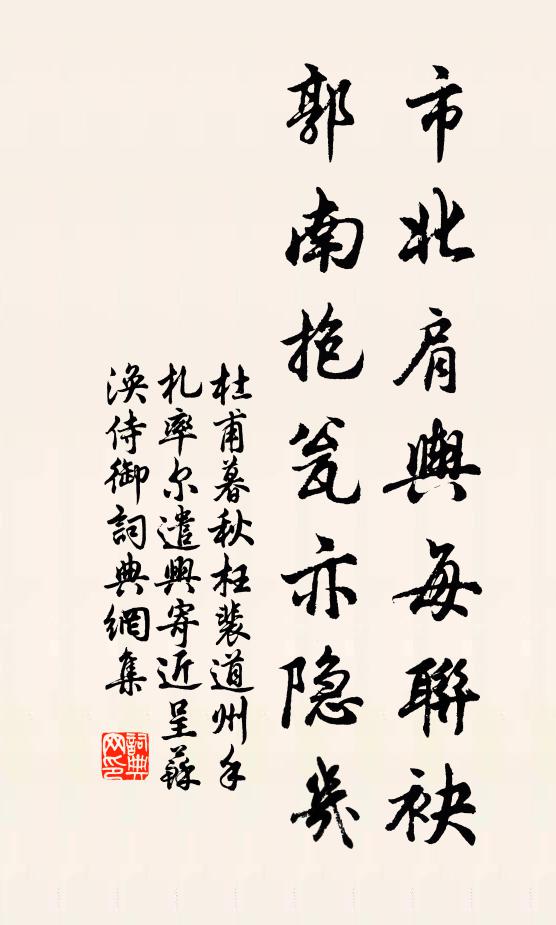 市北肩輿每聯袂
郭南抱瓮亦隐几
杜甫暮秋枉裴道州手
札率尔遣興寄近呈蘇
渙侍御詞典網集
詞典网印